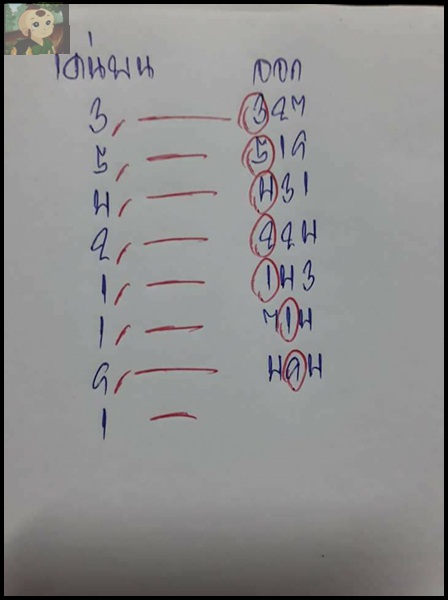 เด่นบน ออก
3, — 327
5, — 519
4, — 431
2, — 224
1, — 143
1, — 714
9, — 494
1 —